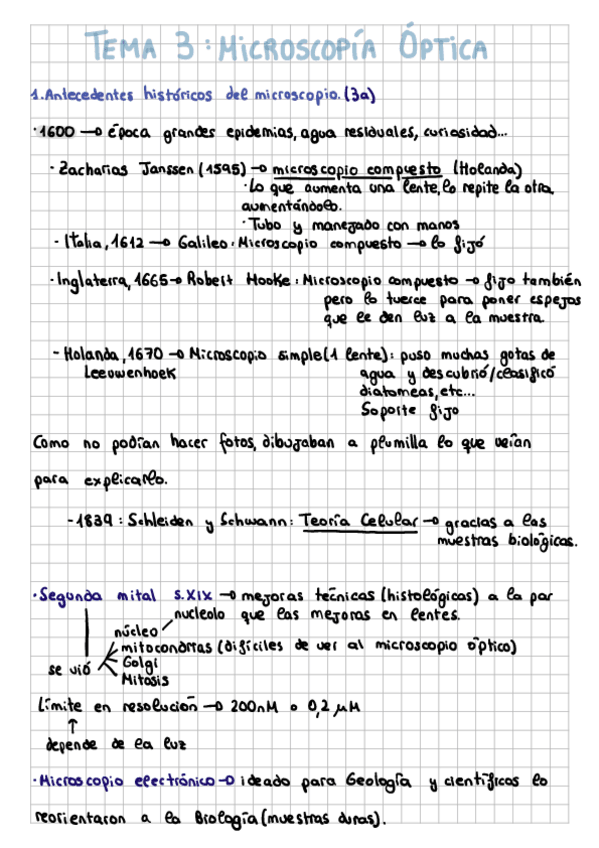 TEMA 3: MICROSCOPÍA ÓPTICA
1. Antecedentes históricos del microscopio. (3a)
·1600 → época grandes epidemias, agua residuales, curiosidad...
· Zacharias Janssen (1595) → microscopio compuesto (Holanda)
· Lo que aumenta una lente, lo repite la otra,
aumentándolo.
· Tubo y manejado con manos
- Italia, 1612 → Galileo: Microscopio compuesto → lo fijó
· Inglaterra, 1665 → Robert Hooke: Microscopio compuesto → fijo también
pero lo tuerce para poner espejos
que le den luz a la muestra.
- Holanda, 1670 → Microscopio simple (1 lente): puso muchas gotas de
Leeuwenhoek agua y descubrió/clasificó
diatomeas, etc...
Soporte fijo
Como no podían hacer fotos, dibujaban a plumilla lo que veían
para explicarlo.
- 1839: Schleiden y Schwann: Teoría Celular → gracias a las
muestras biológicas.
· Segunda mital s.XIX → mejoras técnicas (histológicas) a la par
nucleolo que las mejoras en lentes.
núcleo
mitocondrias (difíciles de ver al microscopio óptico)
se vió Golgi
Mitosis
Límite en resolución → 200nM o 0,2 µM
↑
depende de la luz
· Microscopio electrónico → ideado para Geología y científicos lo
reorientaron a la Biología (muestras duras).